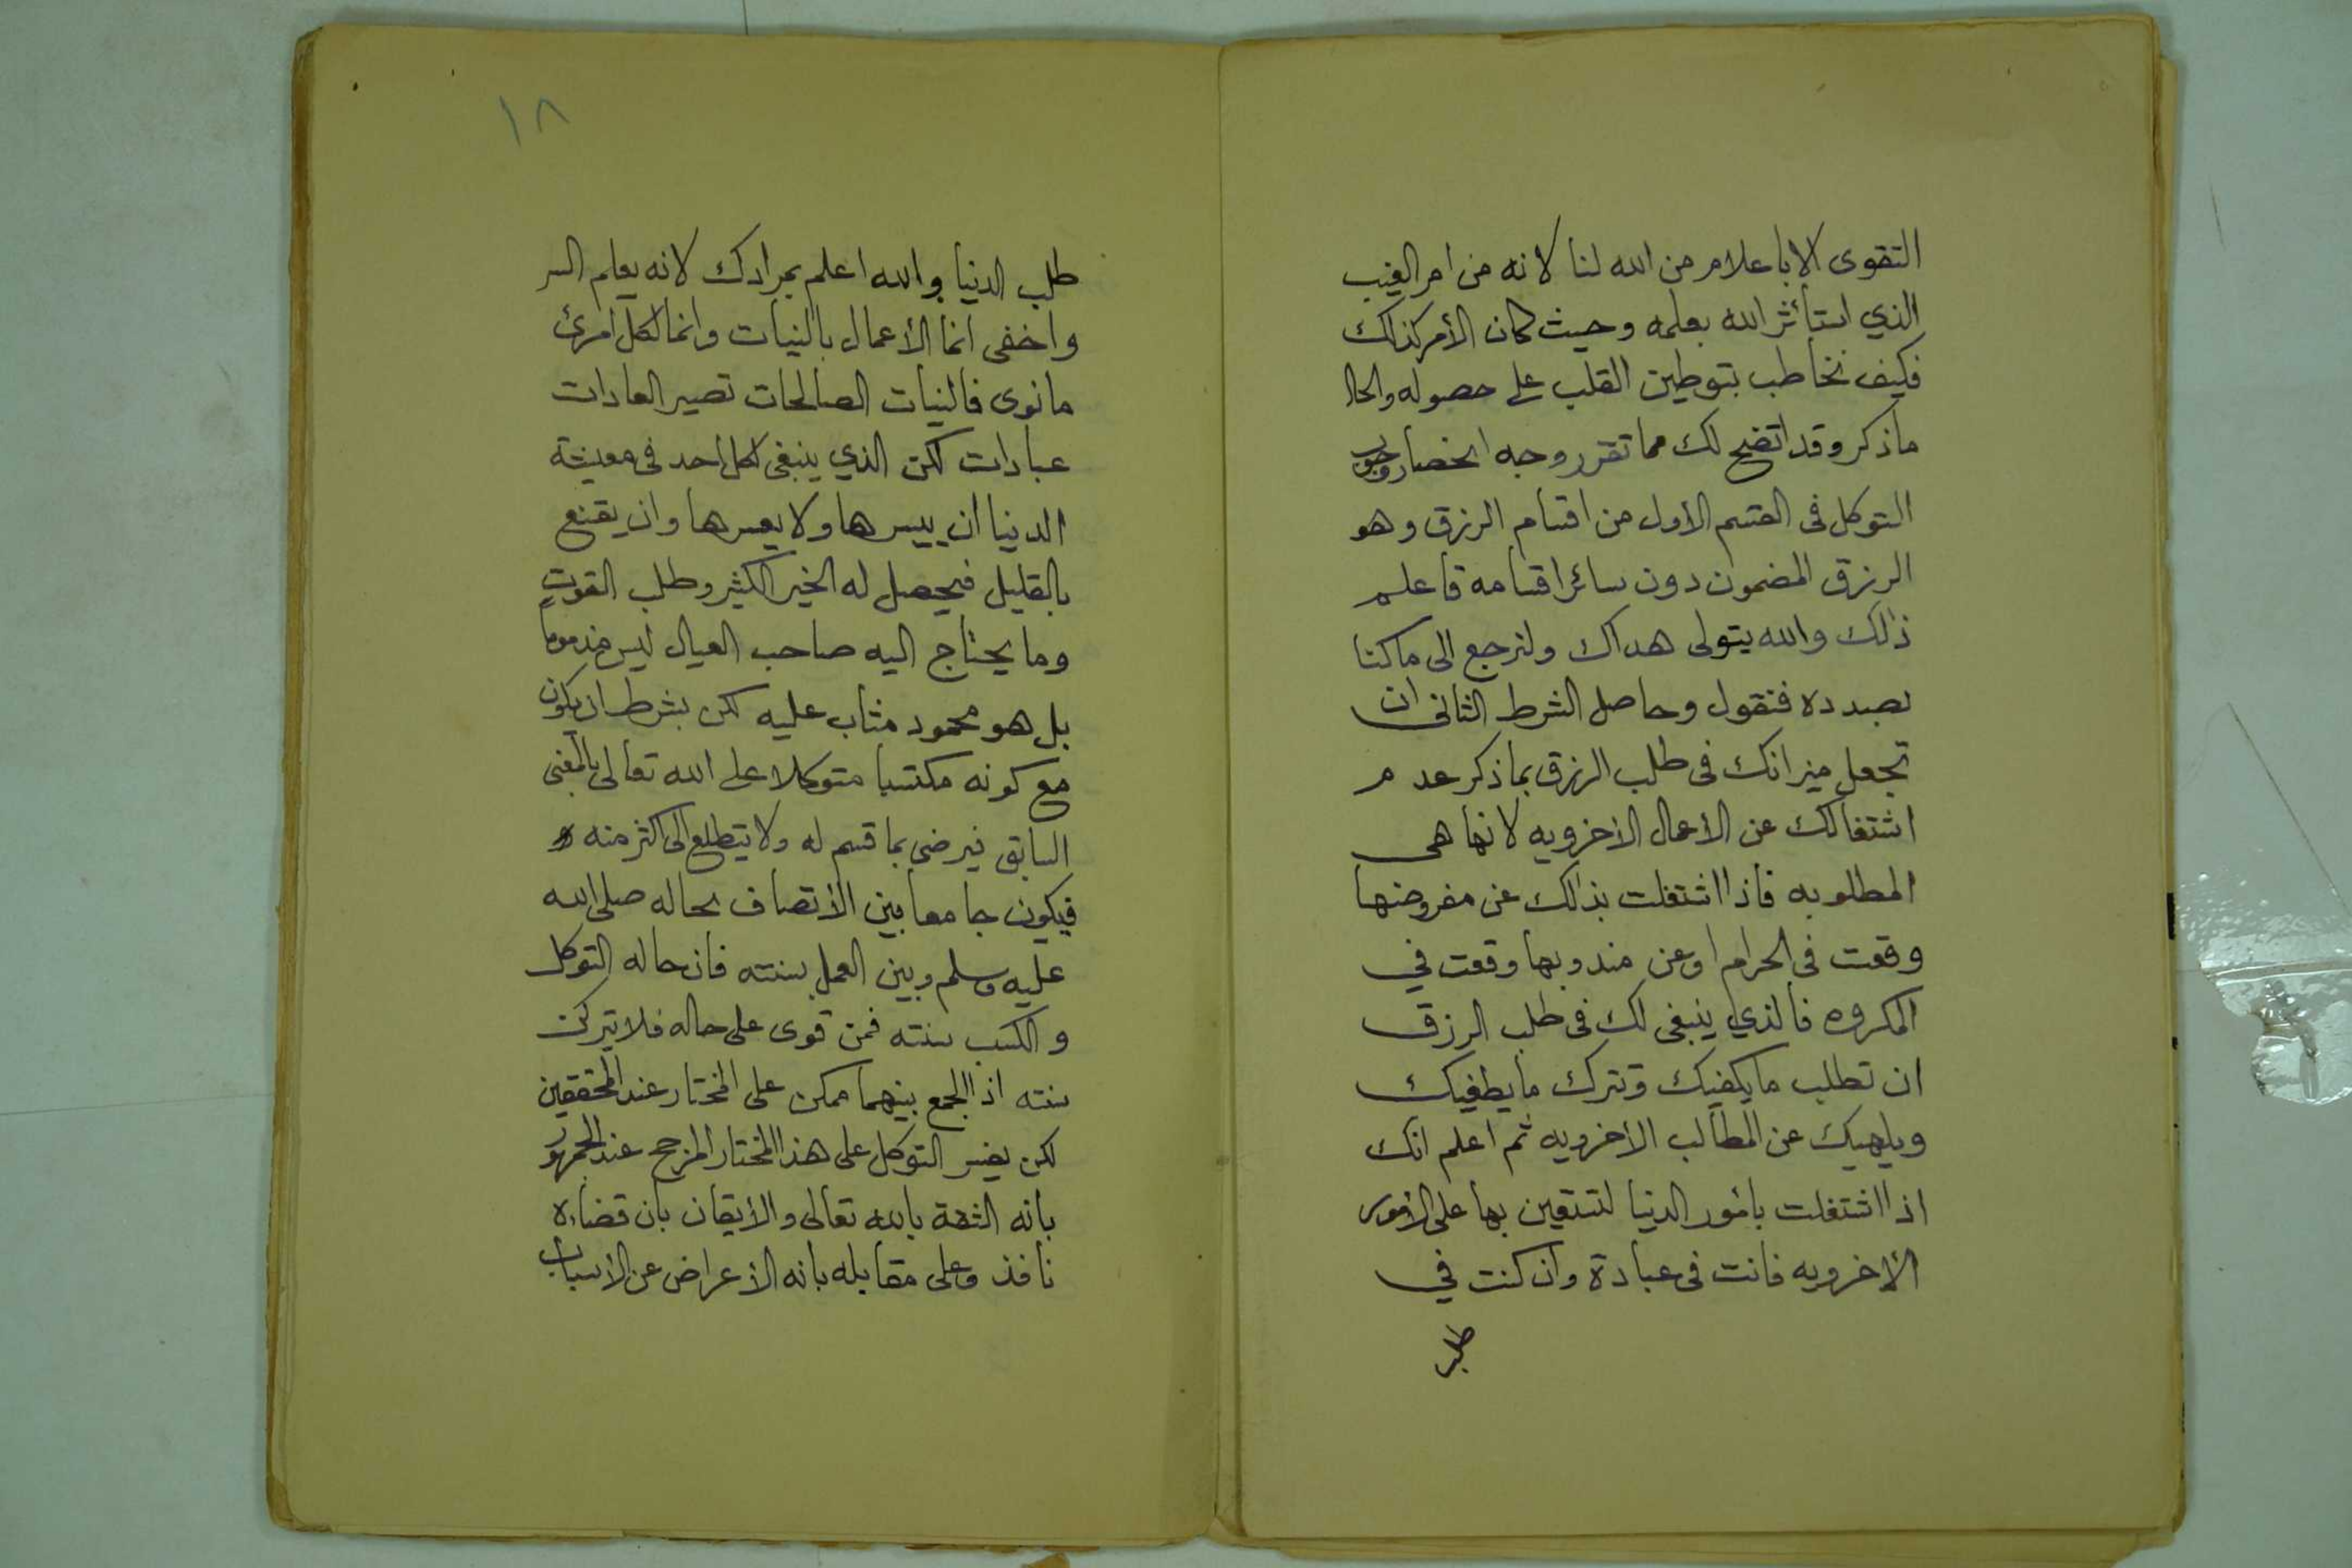 التقوى الا باعلام من الله لنا لانه من امر الغيب
الذي استأثر الله بعلمه وحيث كان الأمر كذلك
فكيف نخاطب بتوطين القلب على حصوله والحال
ما ذكر وقد اتضح لك مما تقرر وجه انحصار وجوب
التوكل فى القسم الأول من اقسام الرزق وهو
الرزق المضمون دون سائر اقسامه فاعلم
ذلك والله يتولى هداك ولنرجع الى ما كنا
بصدده فنقول وحاصل الشرط الثانى ان
تجعل ميزانك فى طلب الرزق بما ذكر عدم
اشتغالك عن الأعمال الأخرويه لانها هى
المطلوبه فاذا اشتغلت بذلك عن مفروضها
وقعت فى الحرام او عن مندوبها وقعت في
المكروه فالذي ينبغى لك فى طلب الرزق
ان تطلب ما يكفيك وتترك ما يطغيك
ويلهيك عن المطالب الأخرويه ثم اعلم انك
اذا اشتغلت بأمور الدنيا لتستعين بها على الأمور
الأخرويه فانت فى عبادة وان كنت في
طلب
١٨
طلب الدنيا والله اعلم بمرادك لانه يعلم السر
واخفى انما الأعمال بالنيات وانما لكل امرئ
ما نوى فالنيات الصالحات تصير العادات
عبادات لكن الذي ينبغى لكل احد فى معيشة
الدنيا ان ييسرها ولا يعسرها وان يقنع
بالقليل فيحصل له الخير الكثير وطلب القوت
وما يحتاج اليه صاحب العيال ليس مذموما
بل هو محمود مثاب عليه لكن بشرط ان يكون
مع كونه مكتسبا متوكلا على الله تعالى بالمعنى
السابق فيرضى بما قسم له ولا يتطلع الى اكثر منه
فيكون جامعا بين الأتصاف بحاله صلى الله
عليه وسلم وبين العمل بسنته فان حاله التوكل
والكسب سنته فمن قوى على حاله فلا يتركن
سنته اذ الجمع بينهما ممكن على المختار عند المحققين
لكن يفسر التوكل على هذا المختار المرجح عند الجمهور
بانه الثقة بالله تعالى والأيقان بان قضاءه
نافذ وعلى مقابله بانه الأعراض عن الأسباب